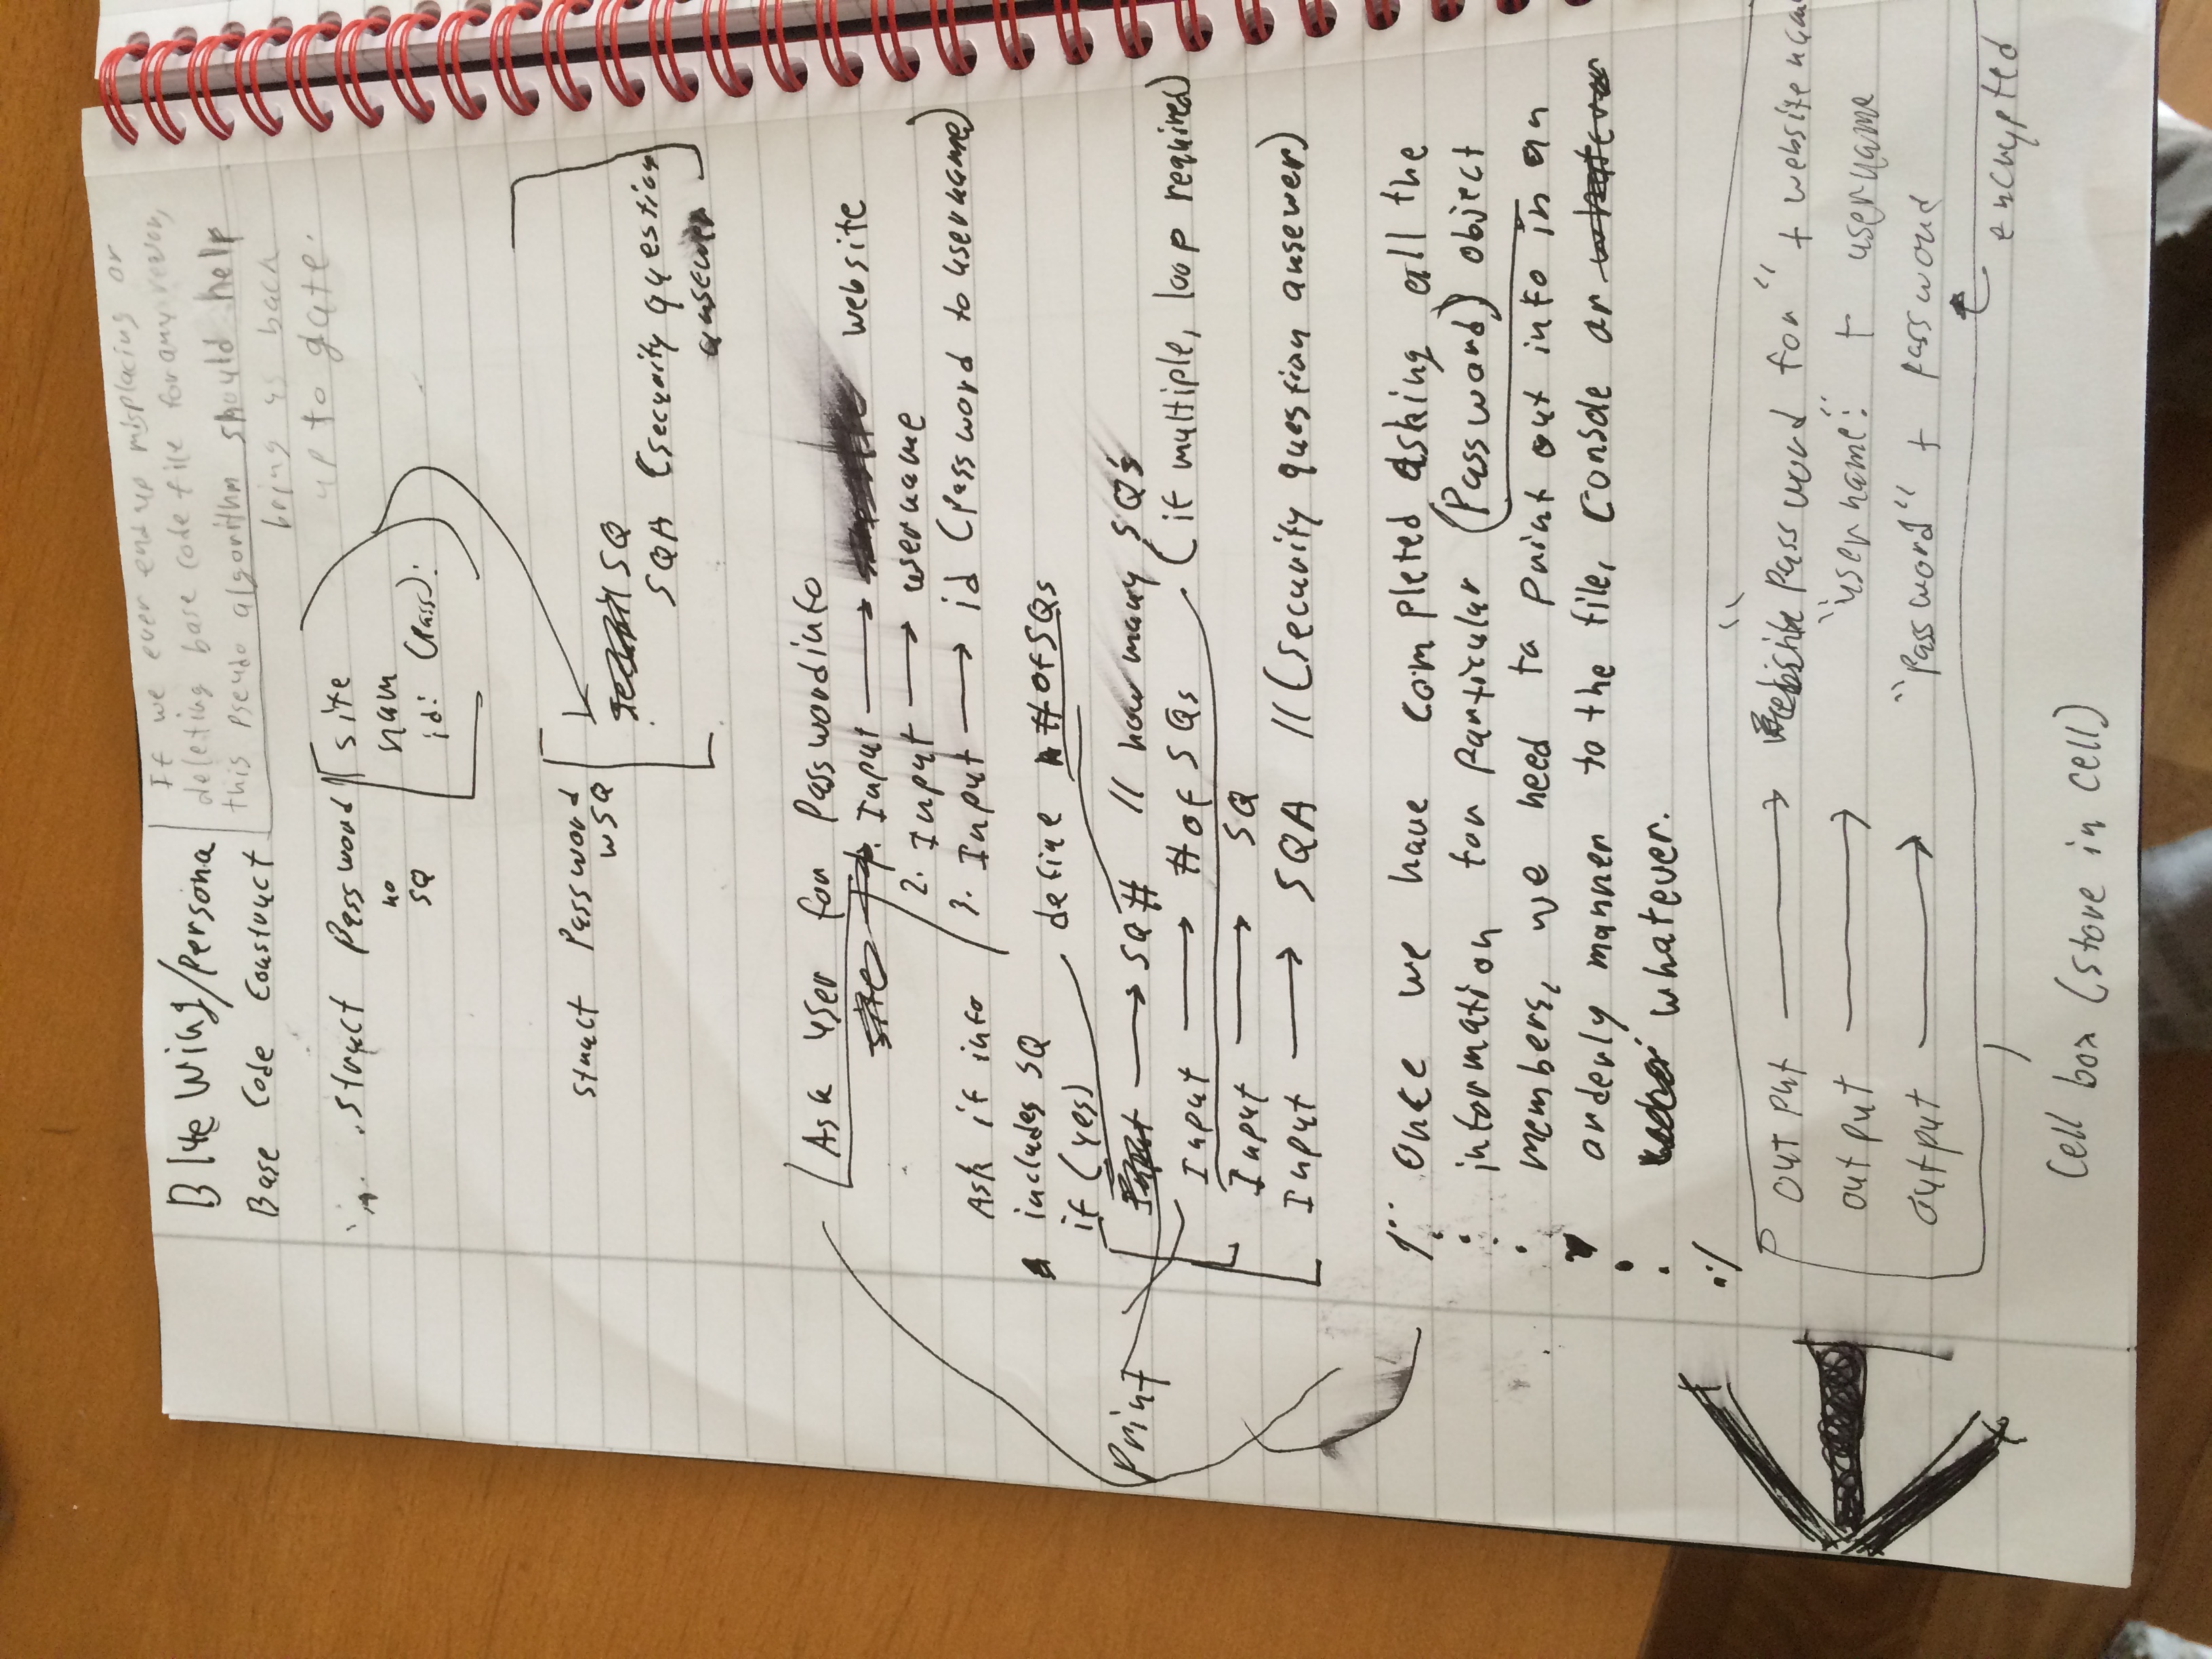 Blue Wing/Persona
Base Code Construct
If we ever end up misplacing or
deleting base code file for any reason,
this pseudo algorithm should help
bring us back
up to date.
struct Password
no
SQ
site
nam
id: (Pass):
struct Password
wSQ
SQ
SQA (security question
ansewer
Ask user for Passwordinfo
1. Input → website
2. Input → username
3. Input → id (Password to username)
Ask if info
includes SQ
if (yes)
define # of SQs
Print
Input → SQ # // how many SQ's
Input → # of SQs (if multiple, loop required)
Input → SQ
Input → SQA //(security question ansewer)
/** Once we have completed asking all the
information for particular (Password) object
members, we need to print out info in an
orderly manner to the file, console or whatever
whatever.
*/
output → "Password for" + website nam
output → "username:" + username
output → "Password" + password
encrypted
Cell box (store in cell)